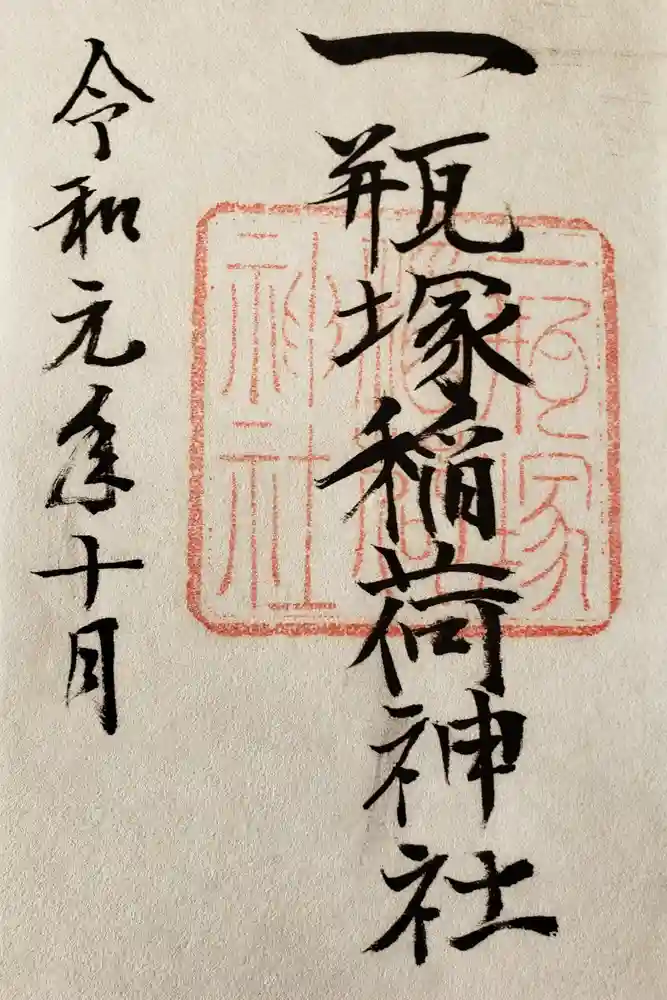 一瓶塚稲荷神社
令和元年十月
一瓶塚稲荷神社